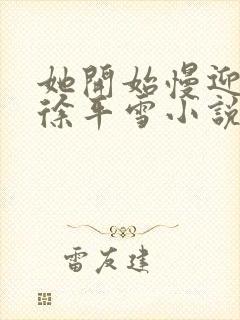 她開始慢迎
徐平雪小說
雷友建